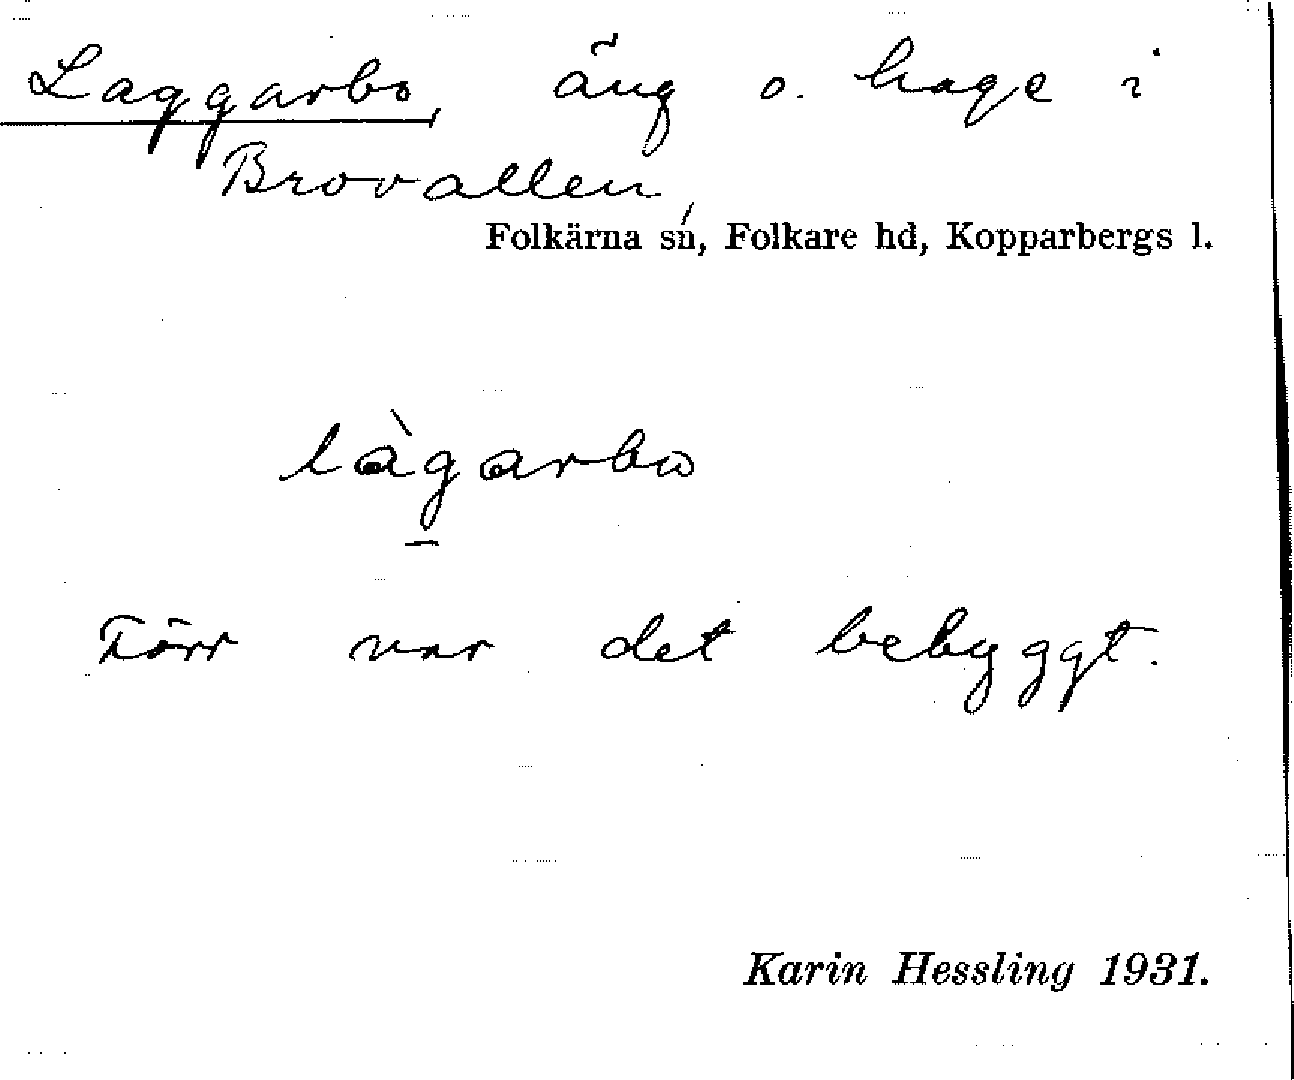 Laggarbo, äng o. hage i
Brovallen,
Folkärna sn, Folkare hd, Kopparbergs l.
làg̱arbω
Förr var det bebyggt.
Karin Hessling 1931.